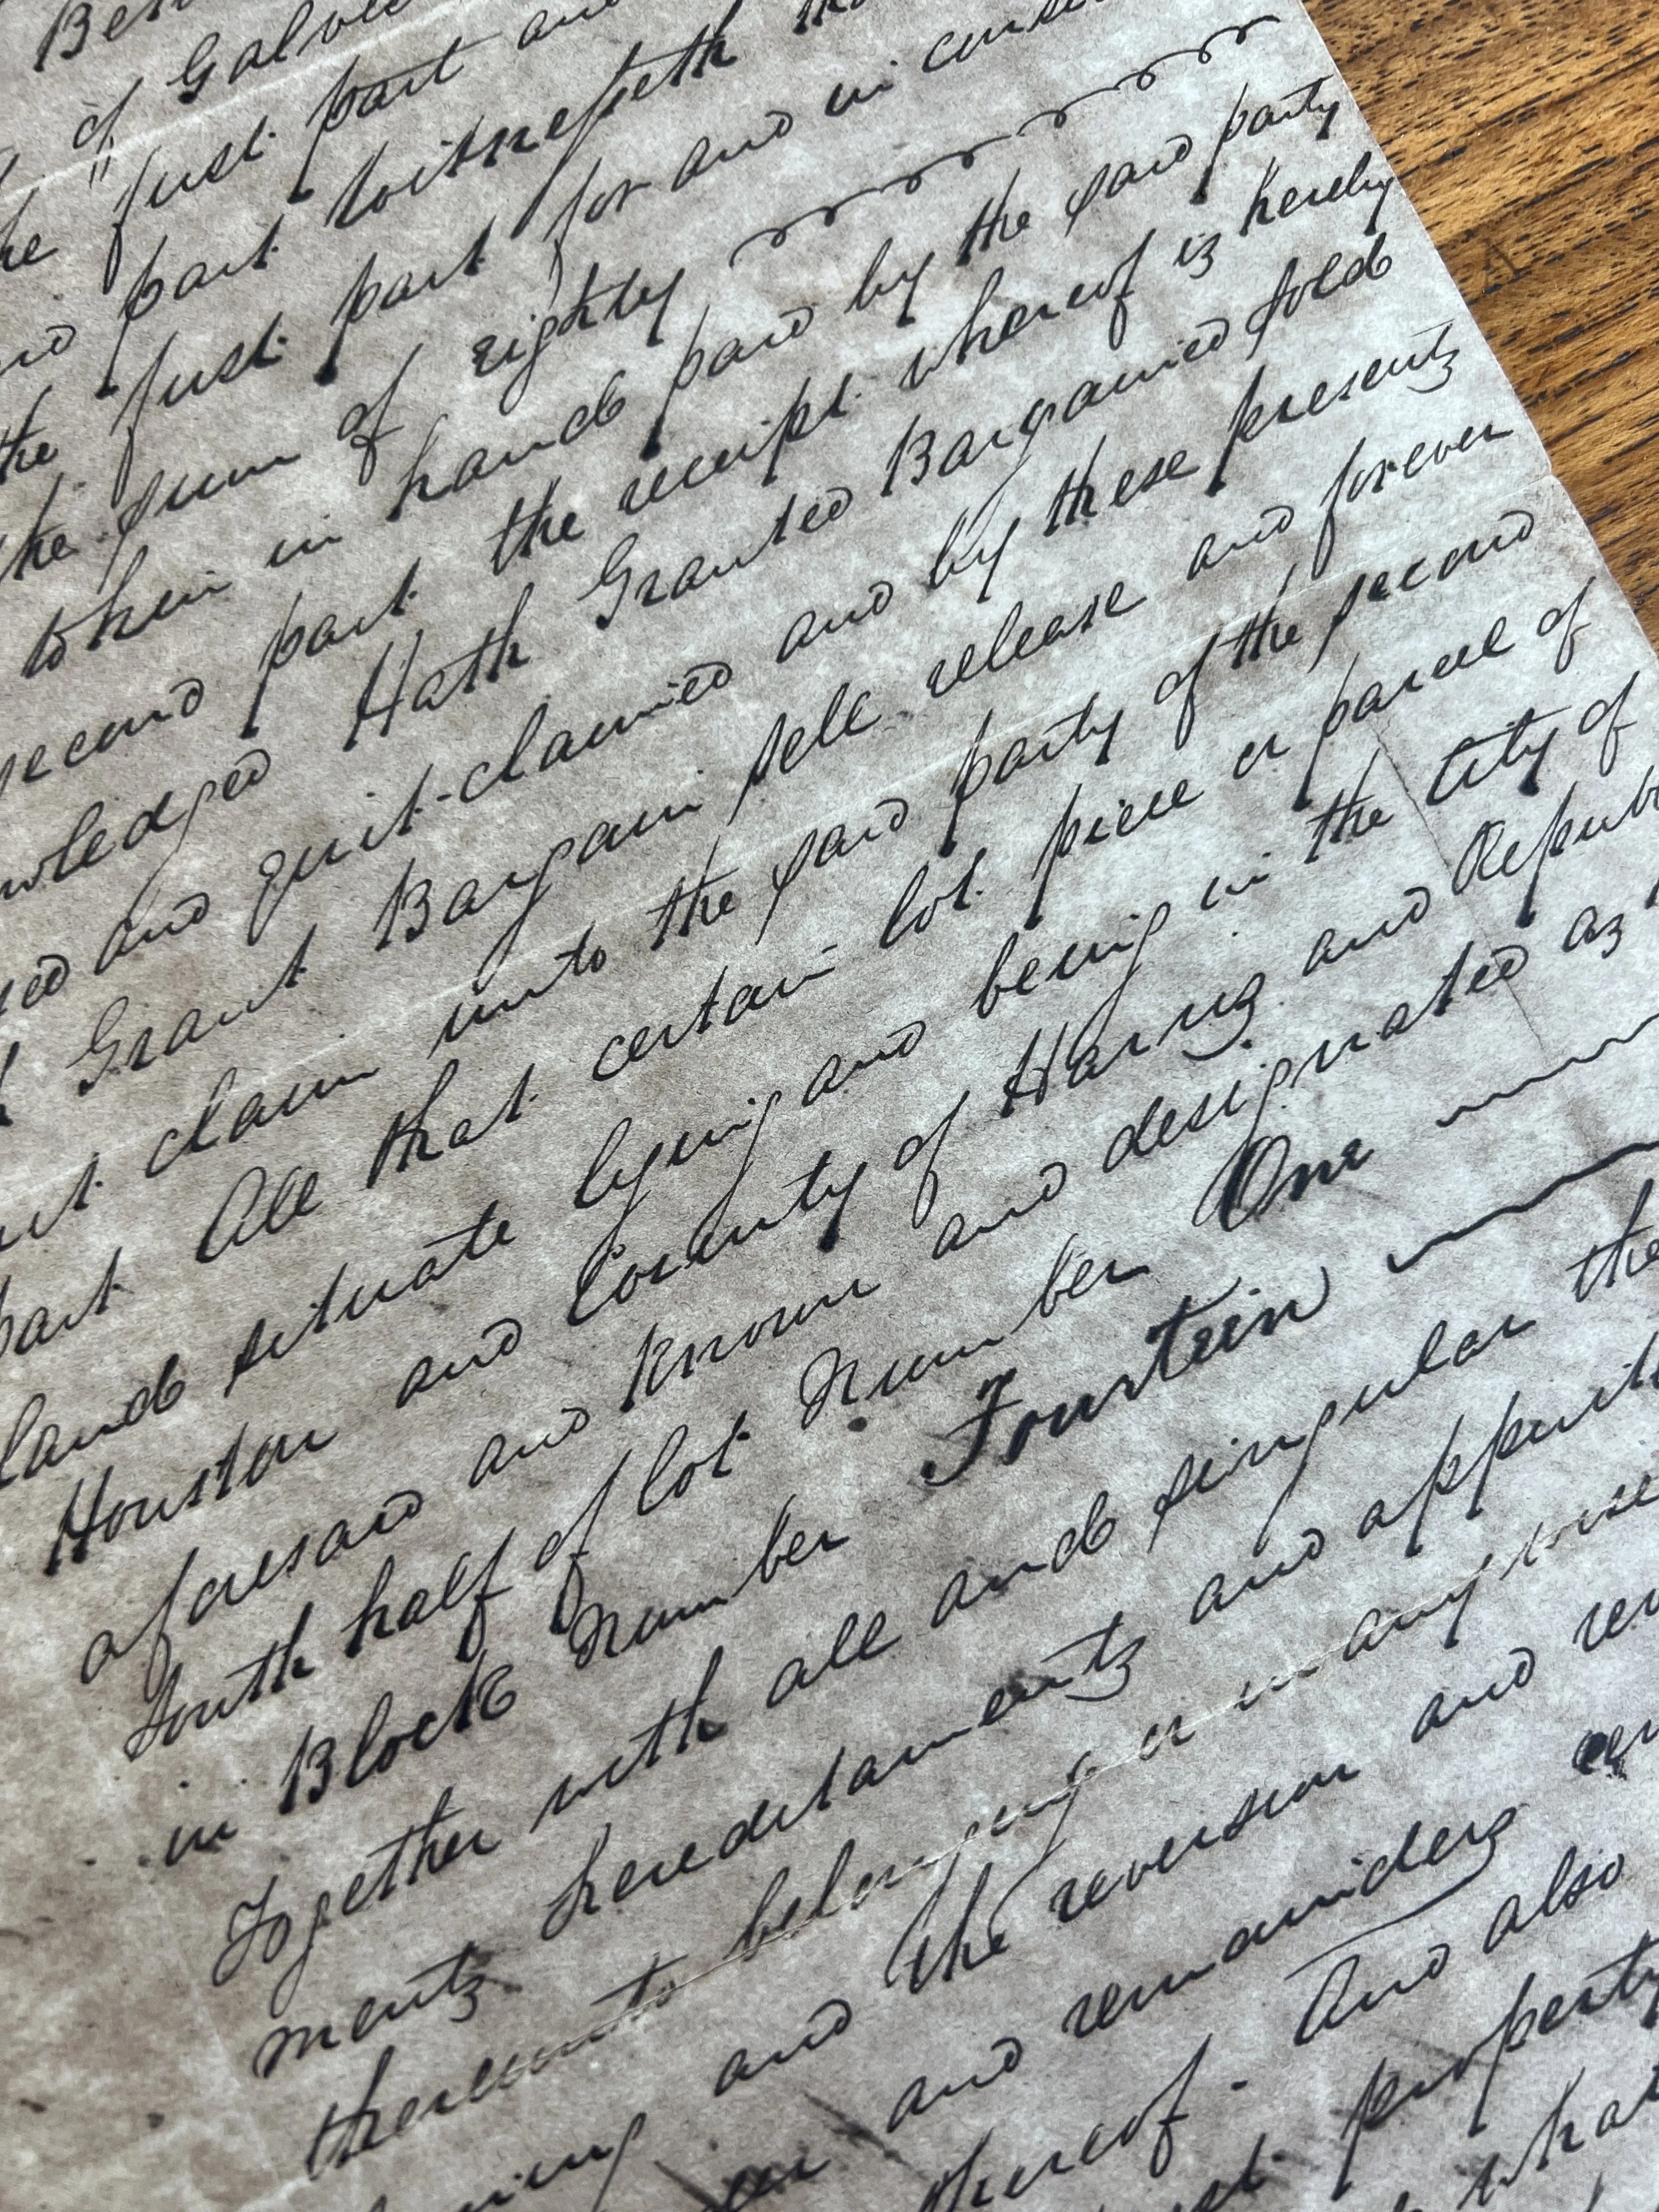 of Galves
the first part and
and part witnesseth
the first part for and in consi
the sum of eighty
to him in hand paid by the said party
second part the receipt whereof is hereby
nowledged Hath Granted Bargained sold
sed and quit-claimed and by these presents
Grant Bargain sell release and forever
claim unto the said party of the second
part All that certain lot piece or parcel of
land situate lying and being in the City of
Houston and County of Harris and Repub
aforesaid and known and designated as
South half of lot Number One
in Block Number Fourteen
Together with all and singular the
ments hereditaments and appurte
thereunto belonging or in any wise
and the reversion and rev
and remainders
thereof. And also
property